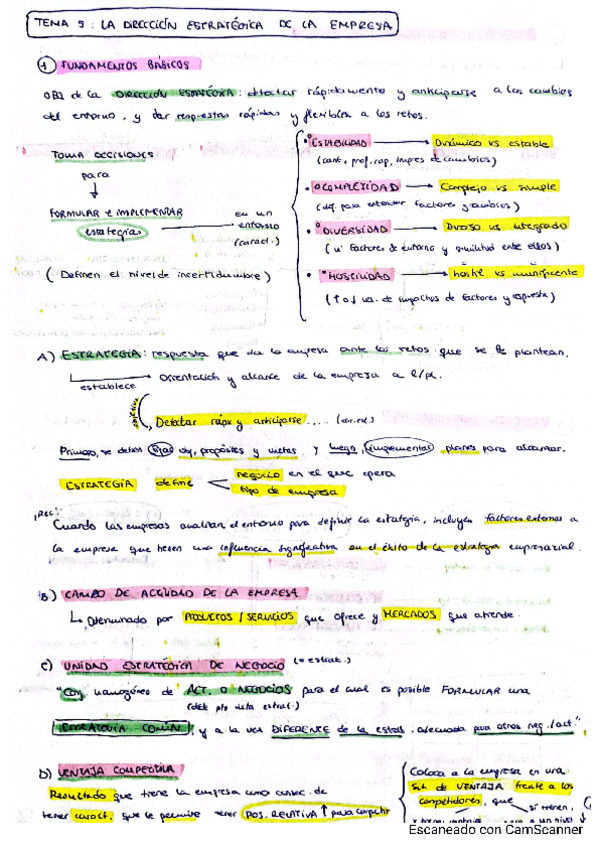 TEMA 5: LA DIRECCIÓN ESTRATÉGICA DE LA EMPRESA
1 FUNDAMENTOS BÁSICOS
OBJ de la DIRECCIÓN ESTRATÉGICA: detectar rápidamente y anticiparse a los cambios
del entorno, y dar respuestas rápidas y flexibles a los retos.
TOMA DECISIONES
para
FORMULAR e IMPLEMENTAR
estrategias
en un
entorno
(caract.)
(Definen el nivel de incertidumbre)
ESTABILIDAD → Dinámico vs estable
COMPLEJIDAD → Complejo vs simple
DIVERSIDAD → Diverso vs integrado
(nº factores de entorno y similitud entre ellos)
HOSTILIDAD → hostil vs munificente
(↑ o ↓ de impactos de factores y respuesta)
A) ESTRATEGIA: respuesta que da la empresa ante los retos que se le plantean.
establece → Orientación y alcance de la empresa a l/pl.
objetivo
Detectar ráp y anticiparse ....
Primero, se deben fijar obj, propósitos y metas, y luego, implementar planes para alcanzar.
ESTRATEGIA define
negocio en el que opera
tipo de empresa
Cuando las empresas analizan el entorno para definir la estrategia, incluyen factores externos a
la empresa que tienen una influencia significativa en el éxito de la estrategia empresarial.
B) CAMPO DE ACTIVIDAD DE LA EMPRESA
Denominado por PRODUCTOS / SERVICIOS que ofrece y MERCADOS que atiende.
C) UNIDAD ESTRATÉGICA DE NEGOCIO
"Conj homogéneo de ACT. O NEGOCIOS para el cual es posible FORMULAR una
(desde pto vista estrat.)
ESTRATEGIA COMÚN, y a la vez DIFERENTE de la estrat. adecuada para otros neg./act."
D) VENTAJA COMPETITIVA
Resultado que tiene la empresa como consec. de
tener caract. que le permite tener POS. RELATIVA ↑ para competir
Coloca a la empresa en una
sit de VENTAJA frente a los
competidores, que
si tienen,
Escaneado con CamScanner